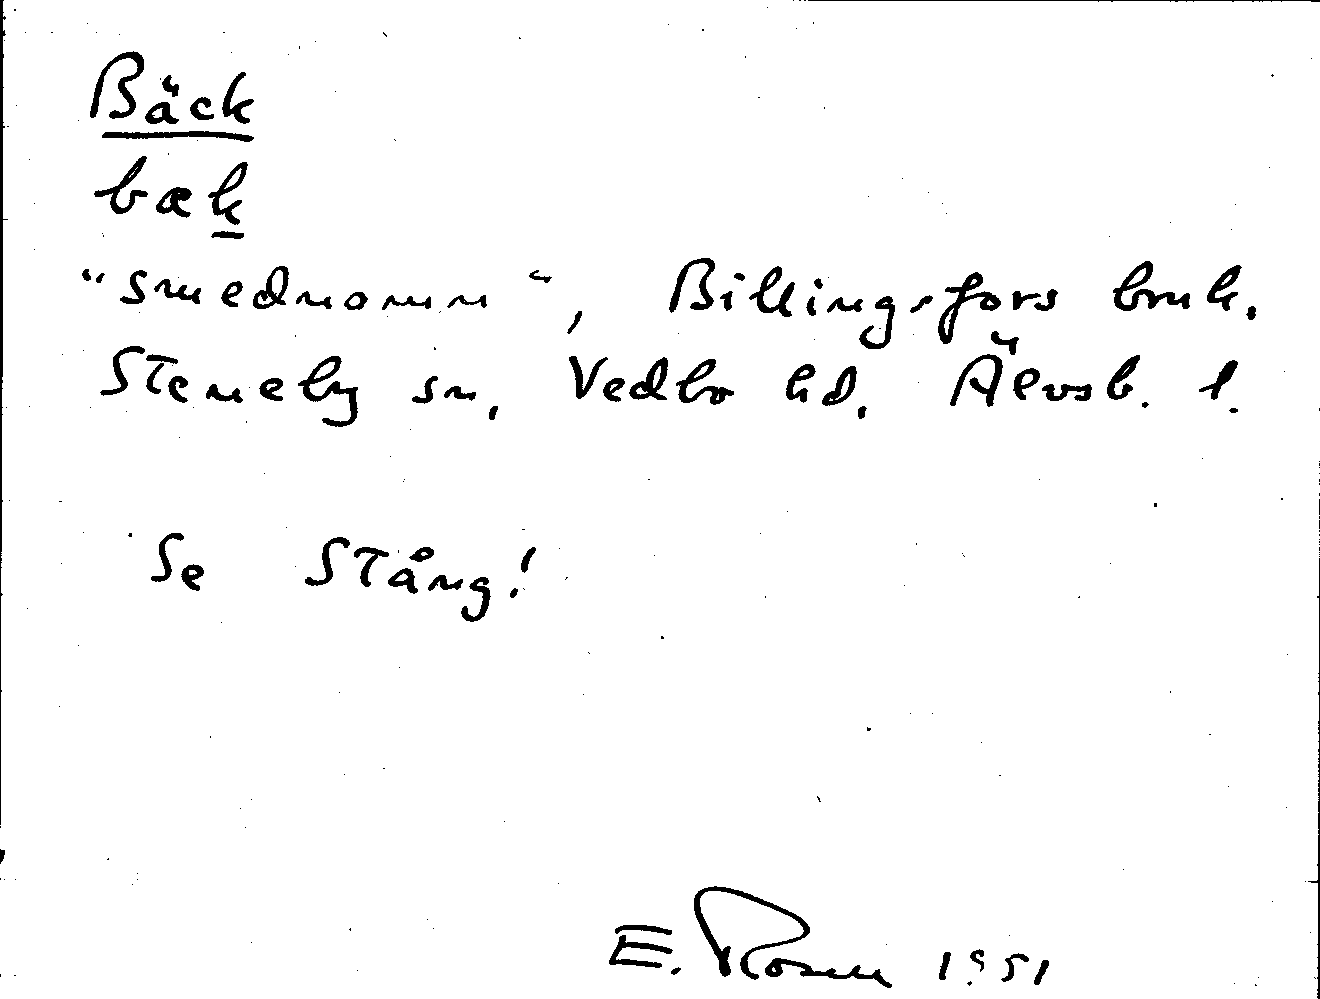 Bäck
bæk
"smednamn", Billingsfors bruk.
Steneby sn, Vedbo hd. Älvsb. l.
Se Stång!
E. Rosén 1951